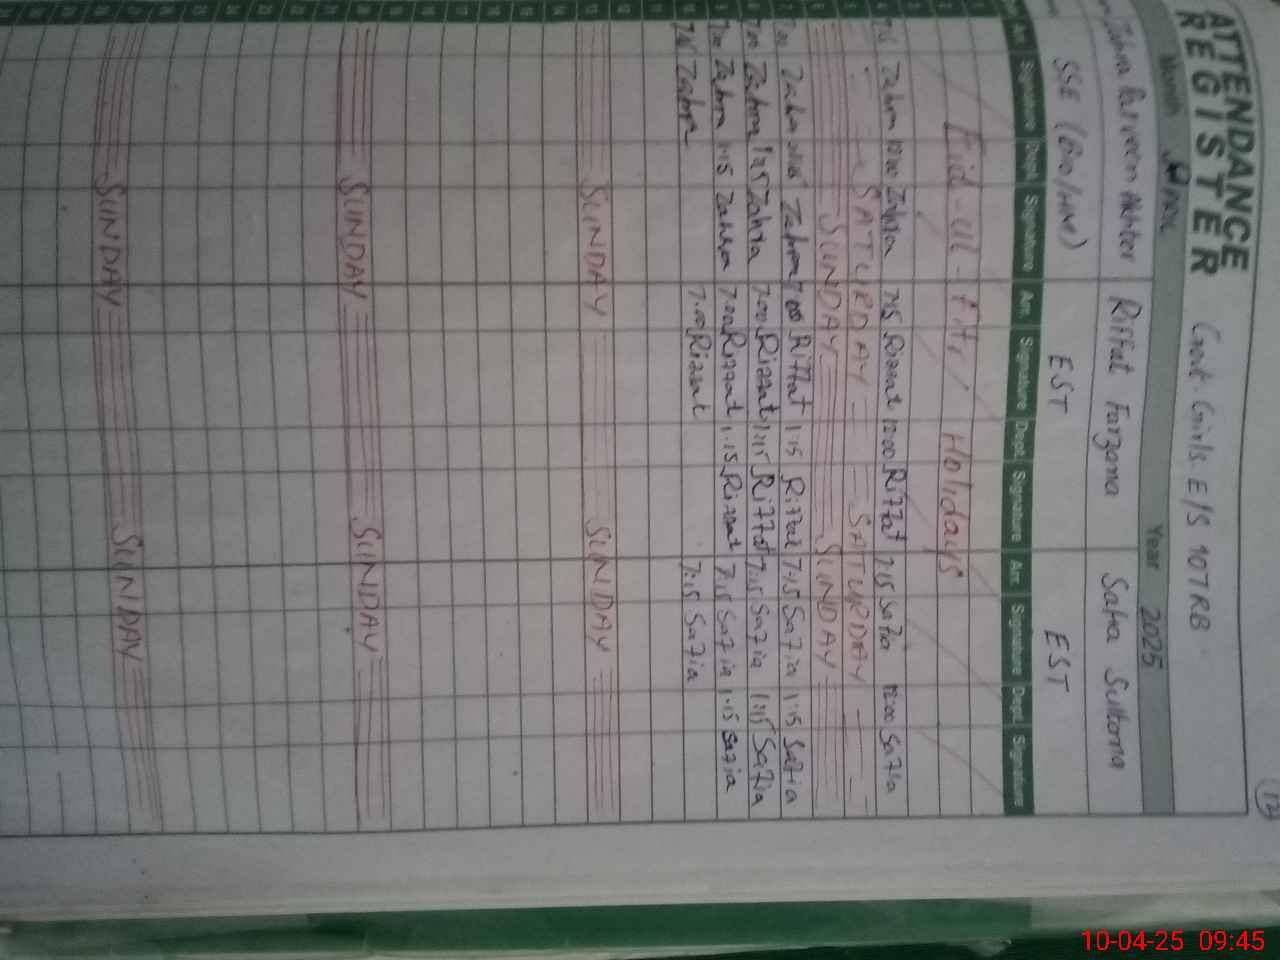 ATTENDANCE
REGISTER
Govt. Girls E/S 107RB
Month April Year 2025
Zahra Parveen Akhter Riffat Farzana Safia Sultana
SSE (Bio/HM) EST EST
Arr. Signature Dept. Signature Arr. Signature Dept. Signature Arr. Signature Dept. Signature
1
2 Eid-ul-Fitr Holidays
3
4 Zahra 12:00 Zahra 7:15 Riffat 12:00 Riffat 7:15 Safia 12:00 Safia
5 SATURDAY SATURDAY
6 SUNDAY SUNDAY
7 7:00 Zahra Zahra 7:00 Riffat 1:15 Riffat 7:15 Safia 1:15 Safia
8 7:00 Zahra 1:15 Zahra 7:00 Riffat 1:15 Riffat 7:15 Safia 1:15 Safia
9 7:00 Zahra 1:15 Zahra 7:00 Riffat 1:15 Riffat 7:15 Safia 1:15 Safia
10 Zahra 7:00 Riffat 7:15 Safia
11
12
13 SUNDAY SUNDAY
14
15
16
17
18
19
20 SUNDAY SUNDAY
21
22
23
24
25
26
27
28 SUNDAY SUNDAY
29
30
10-04-25 09:45